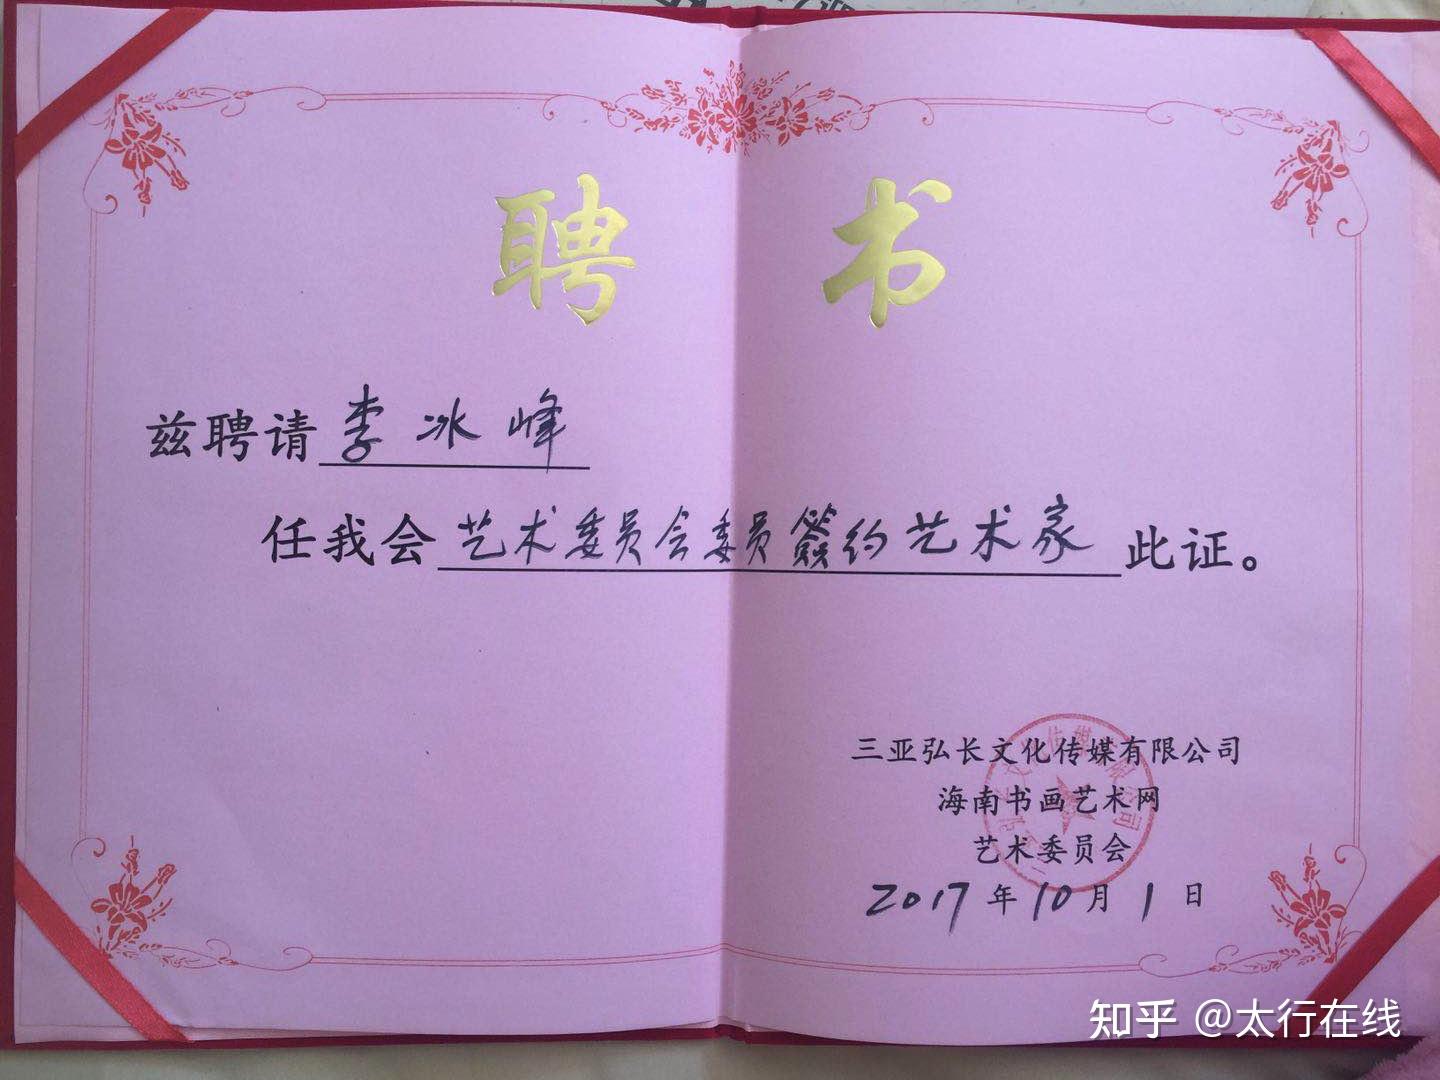 聘书
兹聘请李冰峰
任我会艺术委员会委员簽约艺术家此证。
三亚弘长文化传媒有限公司
海南书画艺术网
艺术委员会
2017年10月1日
知乎 @太行在线